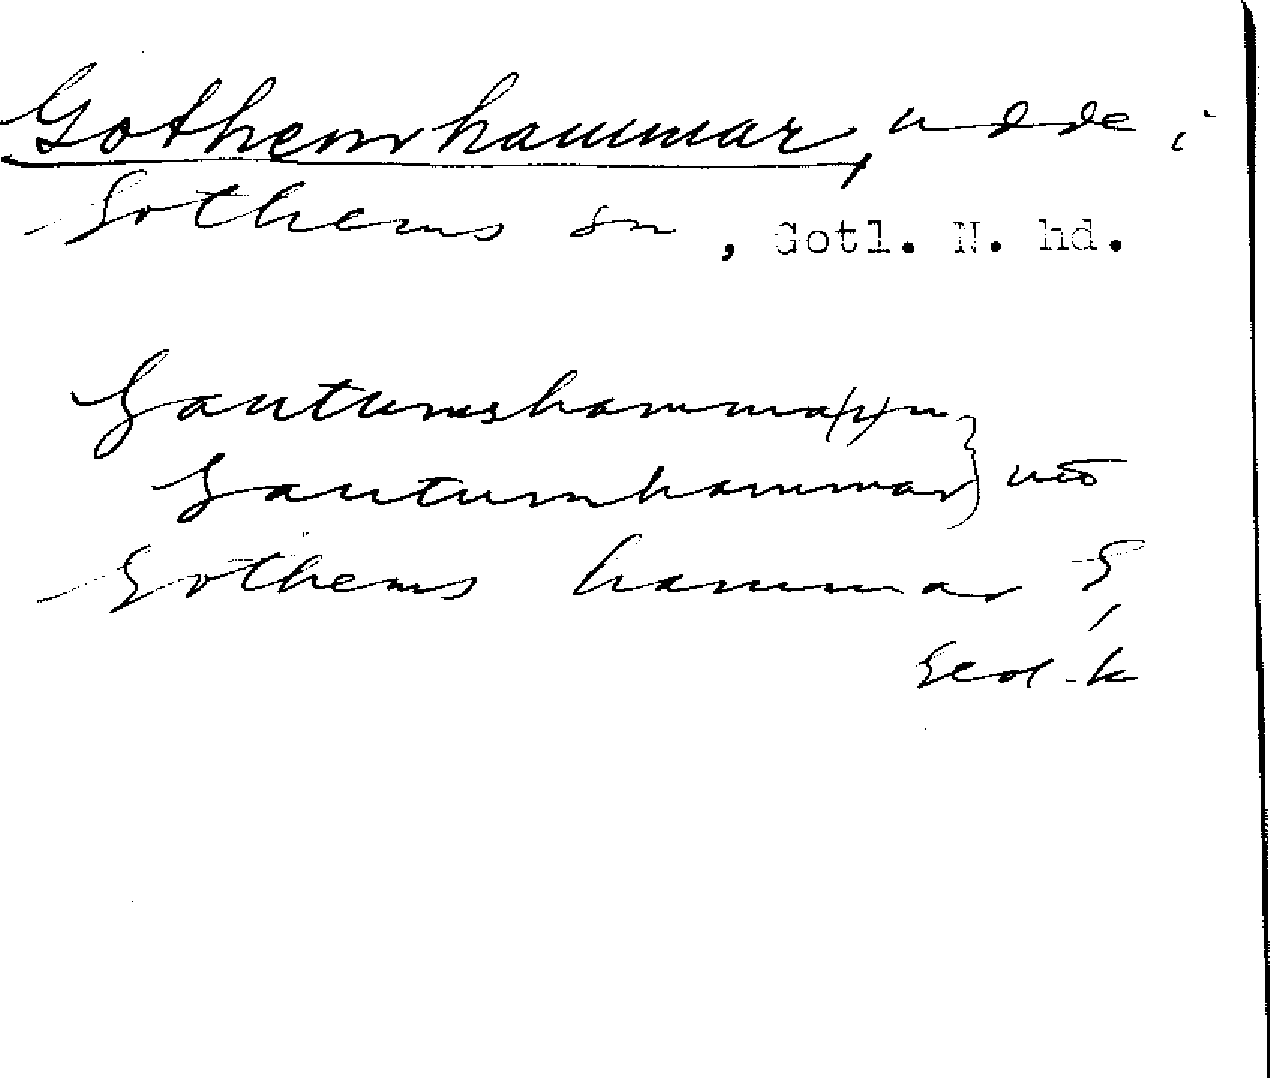 Gothemshammar, udde i
Gothems sn, Gotl. N. hd.
Gautumshamma(r)n
Gautumshammar } utō
Gothems hammar G
Geol. k